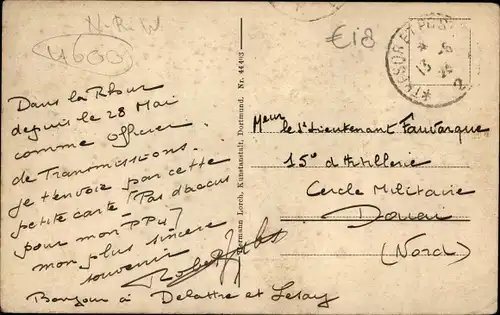 N-R.W.
4600
€18
TRESOR ET POSTES
Dans la Rhur
depuis le 28 Mai
comme officier
de Transmissions.
je t'envoie par cette
petite carte (Pas d'accus
pour mon PP4)
mon plus sincère
souvenir
Bonjour à Delattre et Lesay
Hermann Lorch, Kunstanstalt, Dortmund. Nr. 44463
Meur le Lieutenant Fauvarque
15e d'Artillerie
Cercle Militaire
Douai
(Nord)